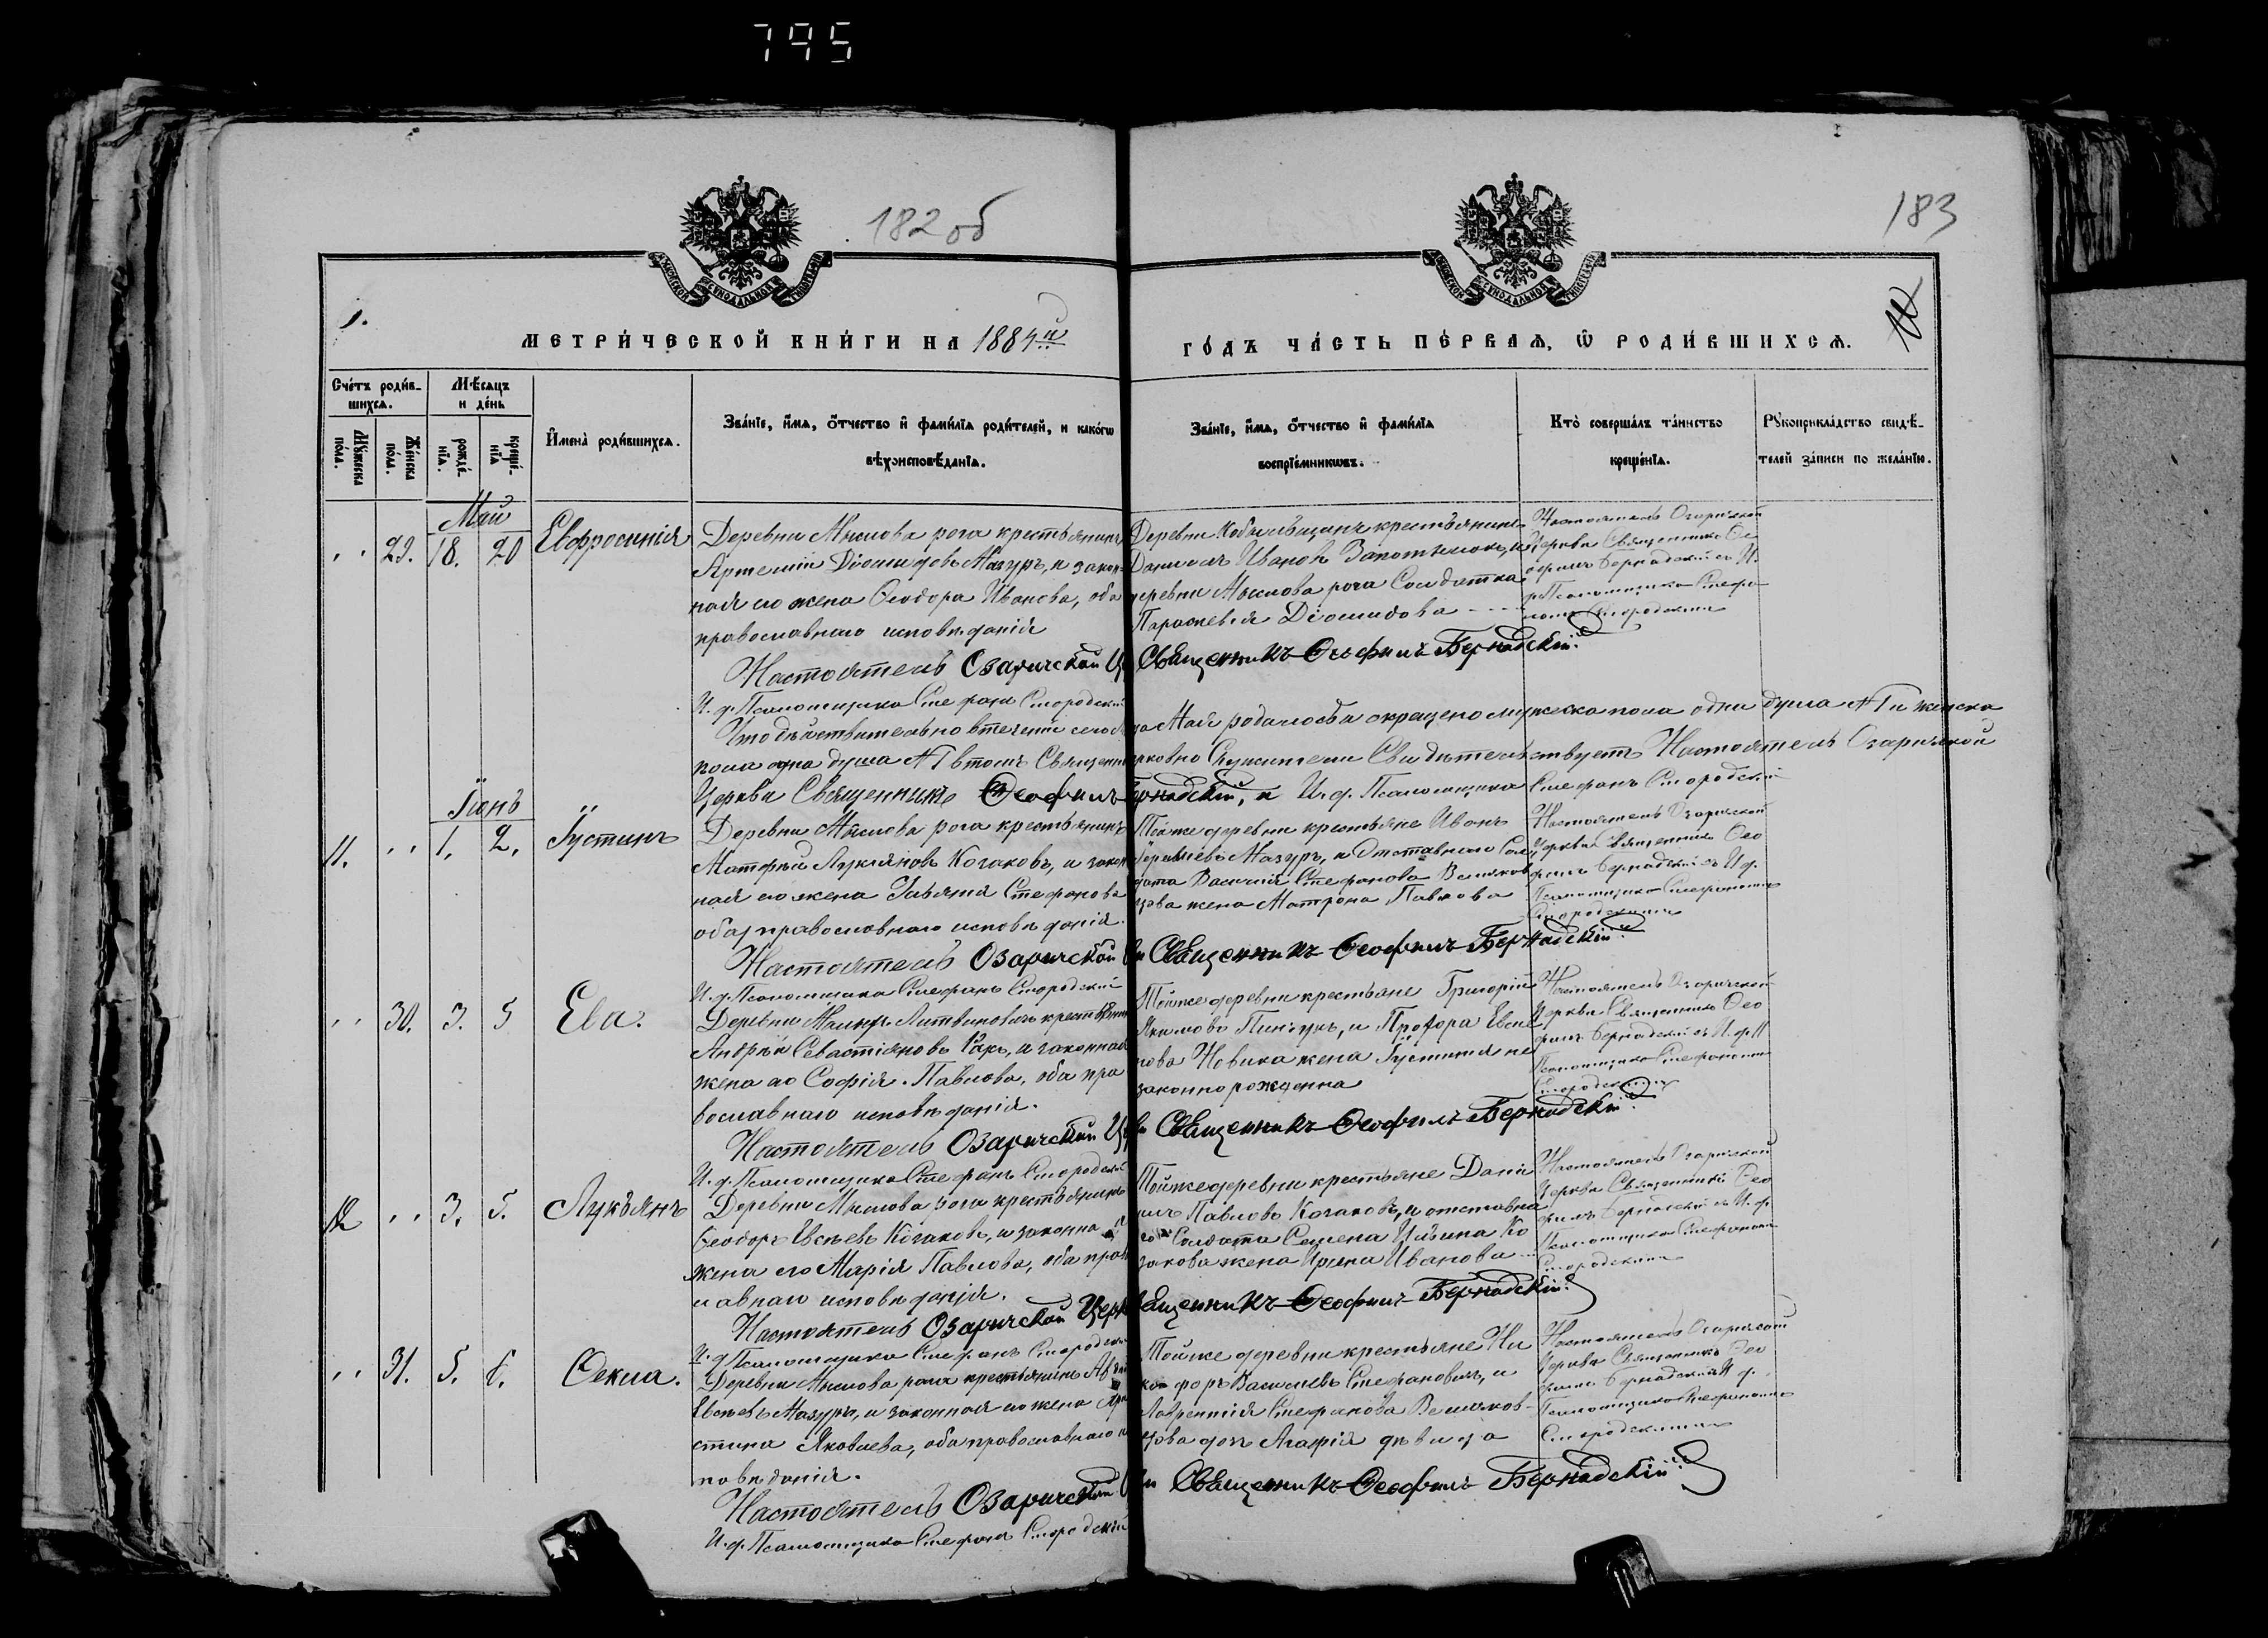 795
182 об
183
1.
МЕТРИ́ЧЕСКОЙ КНИ́ГИ НА 1884 й
ГО́ДЪ ЧА́СТЬ ПЕ́РВАѦ, Ѡ҆ РОДИ́ВШИХСѦ.
Сче́тъ роди́в-
шихсѧ.
Мѣ́сѧцъ
и де́нь
Мꙋ́жеска
по́ла.
Же́нска
по́ла.
рожде́-
нїѧ.
креще́-
нїѧ
И҆мена̀ роди́вшихсѧ.
Зва́нїе, и҆́мѧ, ѻ҆́тчество и҆ фами́лїѧ роди́телей, и како́гѡ
вѣ́роисповѣ́данїѧ.
Зва́нїе, и҆́мѧ, ѻ҆́тчество и҆ фами́лїѧ
воспрїе́мникѡвъ.
Кто̀ соверша́лъ та́инство
креще́нїѧ.
Рꙋкоприкла́дство свидѣ́-
телей за́писи по жела́нїю.
Май
29. 18. 20 Евфросинія
Деревни Мыслова рога крестьянинъ
Артемій Діомидовъ Мазуръ, и закон-
ная его жена Ѳеодора Иванова, оба
православнаго исповѣданія
Деревни крестьянинъ
Даніилъ Ивановъ
деревни Мыслова рога Солдатка
Параскевія Діомидова
Настоятель Озаричской
Церкви Священникъ Ѳео
филъ Бернадскій съ И.
д. Псаломщика Стефа
номъ Смородскимъ
Настоятель Озаричской Священникъ Ѳеофилъ Бернадскій
И. д. Псаломщика Стефанъ Смородскій
Что дѣйствительно втеченіи сего Мая родилось и окрещено мужеска пола одна душа и женска
пола одна душа втомъ Свидѣтельствуетъ Настоятель Озаричской
Церкви Священникъ Ѳеофилъ Бернадскій, и И. д. Псаломщика Стефанъ Смородскій
Іюнь
11. 1. 2. Іустинъ
Деревни Мыслова рога крестьянинъ
Матфей Лукіяновъ Козаковъ, и закон
ная его жена Стефанова
оба православнаго исповѣданія.
Тойже деревни крестьяне Иванъ
Мазуръ, и Отставнаго Сол
дата Василія Стефанова
жена Матрона Павлова
Настоятель Озаричской
Церкви Священникъ Ѳео
филъ Бернадскій съ И. д.
Псаломщика Стефаномъ
Смородскимъ
Настоятель Озаричской Священникъ Ѳеофилъ Бернадскій
И. д. Псаломщика Стефанъ Смородскій
30. 3. 5 Ева.
Деревни Литвиновичъ крестьянинъ
Андрей Севастіяновъ Ракъ, и законная
жена его Софія Павлова, оба пра
вославнаго исповѣданія.
Тойже деревни крестьяне Григорій
Якимовъ Пинчукъ, и Прохора
Новика жена Іустинія не
законнорожденна
Настоятель Озаричской
Церкви Священникъ Ѳео
филъ Бернадскій съ И. д.
Псаломщика Стефаномъ
Смородскимъ
Настоятель Озаричской Священникъ Ѳеофилъ Бернадскій
И. д. Псаломщика Стефанъ Смородскій
12 3. 5. Лукьянъ
Деревни Мыслова рога крестьянинъ
Ѳеодоръ Евсѣевъ Козаковъ, и законна я
жена его Марія Павлова, оба право
славнаго исповѣданія.
Тойже деревни крестьяне Дані
илъ Павловъ Козаковъ, и отставна
го Солдата Семена Ильина Ко
закова жена Ирина Иванова
Настоятель Озаричской
Церкви Священникъ Ѳео
филъ Бернадскій съ И. д.
Псаломщика Стефаномъ
Смородскимъ
Настоятель Озаричской Церкви Священникъ Ѳеофилъ Бернадскій
И. д. Псаломщика Стефанъ Смородскій
31. 5. 6. Ѳекла.
Деревни Мыслова рога крестьянинъ
Евсѣевъ Мазуръ, и законная его жена Хри
стина Яковлева, оба православнаго ис
повѣданія.
Тойже деревни крестьяне Ни
кифоръ Васильевъ Стефановичъ, и
Лаврентія Стефанова
дочь Агафія дѣвица
Настоятель Озаричской
Церкви Священникъ Ѳео
филъ Бернадскій И. д.
Псаломщика Стефаномъ
Смородскимъ
Настоятель Озаричской Священникъ Ѳеофилъ Бернадскій
И. д. Псаломщика Стефанъ Смородскій